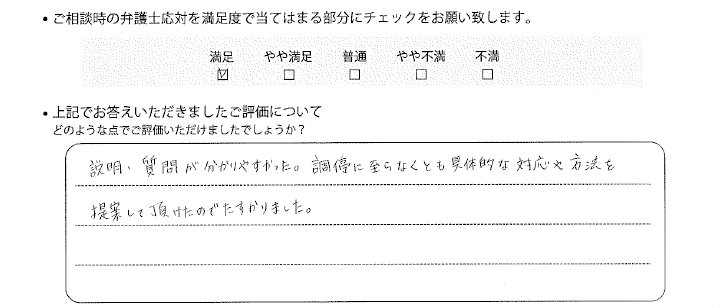 ・ご相談時の弁護士応対を満足度で当てはまる部分にチェックをお願い致します。
満足 やや満足 普通 やや不満 不満
☑ □ □ □ □
・上記でお答えいただきましたご評価について
どのような点でご評価いただけましたでしょうか？
説明・質問が分かりやすかった。調停に至らなくとも具体的な対応や方法を
提案して頂けたのでたすかりました。